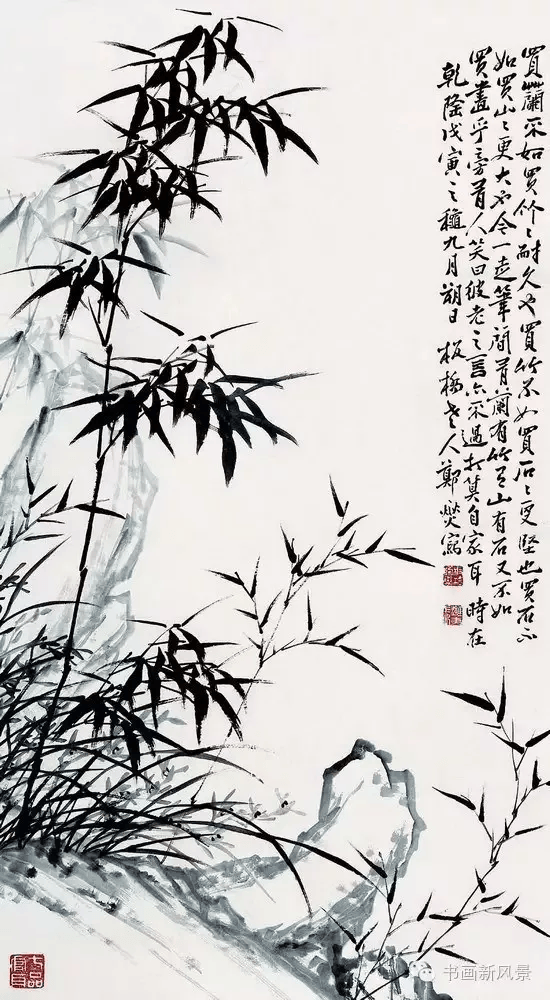 買蘭不如買竹〻耐久也買竹不如買石〻更堅也買石不
如買山〻更大也今一走筆間有蘭有竹有山有石又不如
買畫乎旁有人笑曰彼老之言亦不過打算自家耳時在
乾隆戊寅之穐九月朔日 板橋老人鄭燮寫
书画新风景